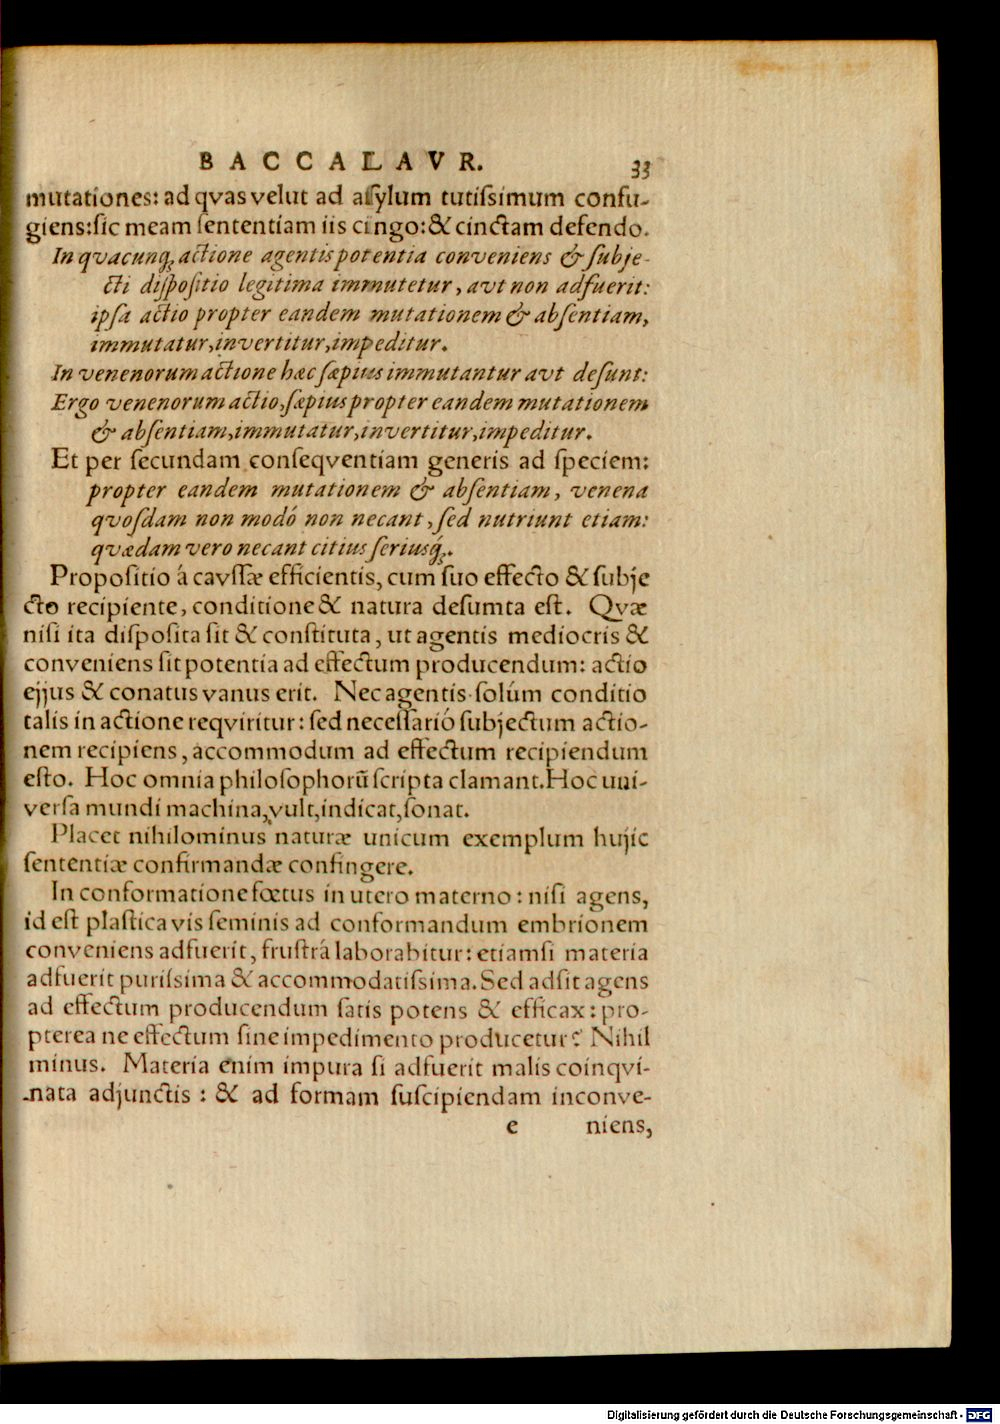 BACCALAVR. 33
mutationes: ad qvas velut ad aſylum tutiſsimum confu-
giens: ſic meam ſententiam iis cingo: & cinctam defendo.
In qvacunq; actione agentis potentia conveniens & ſubje-
cti diſpoſitio legitima immutetur, avt non adfuerit:
ipſa actio propter eandem mutationem & abſentiam,
immutatur, invertitur, impeditur.
In venenorum actione hæc ſæpius immutantur avt deſunt:
Ergo venenorum actio, ſæpius propter eandem mutationem
& abſentiam, immutatur, invertitur, impeditur.
Et per ſecundam conſeqventiam generis ad ſpeciem:
propter eandem mutationem & abſentiam, venena
qvoſdam non modó non necant, ſed nutriunt etiam:
qvædam vero necant citius ſeriusq́;.
Propoſitio á cavſſæ efficientis, cum ſuo effecto & ſubje
cto recipiente, conditione & natura deſumta eſt. Qvæ
niſi ita diſpoſita ſit & conſtituta, ut agentis mediocris &
conveniens ſit potentia ad effectum producendum: actio
ejjus & conatus vanus erit. Nec agentis ſolúm conditio
talis in actione reqviritur: ſed neceſſarió ſubjectum actio-
nem recipiens, accommodum ad effectum recipiendum
eſto. Hoc omnia philoſophorū ſcripta clamant. Hoc uni-
verſa mundi machina, vult, indicat, ſonat.
Placet nihilominus naturæ unicum exemplum hujic
ſententiæ confirmandæ confingere.
In conformatione fœtus in utero materno: niſi agens,
id eſt plaſtica vis ſeminis ad conformandum embrionem
conveniens adfuerit, fruſtrá laborabitur: etiamſi materia
adfuerit puriſsima & accommodatiſsima. Sed adſit agens
ad effectum producendum ſatis potens & efficax: pro-
pterea ne effectum ſine impedimento producetur? Nihil
minus. Materia enim impura ſi adfuerit malis coinqvi-
nata adjunctis: & ad formam ſuſcipiendam inconve-
e niens,
Digitalisierung gefördert durch die Deutsche Forschungsgemeinschaft - DFG